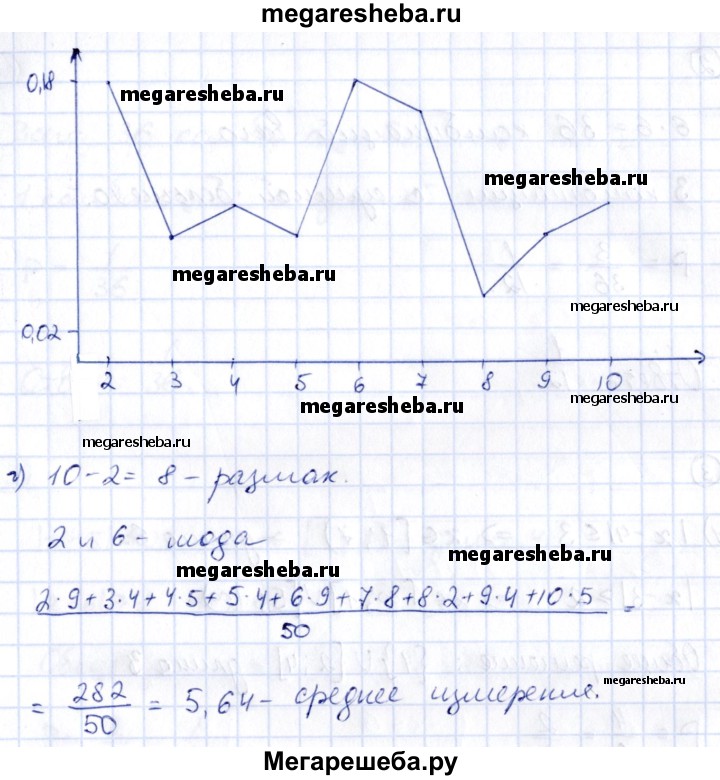 megaresheba.ru
0,18
megaresheba.ru
megaresheba.ru
megaresheba.ru
megaresheba.ru
0,02
2 3 4 5 6 7 8 9 10
megaresheba.ru
megaresheba.ru
megaresheba.ru
г) 10-2= 8 - размах.
2 и 6 - мода
megaresheba.ru
megaresheba.ru
2·9+3·4+4·5+5·4+6·9+7·8+8·2+9·4+10·5 =
50
= 282 = 5,64 - среднее измерение.
50
megaresheba.ru
megaresheba.ru
Мегарешеба.ру